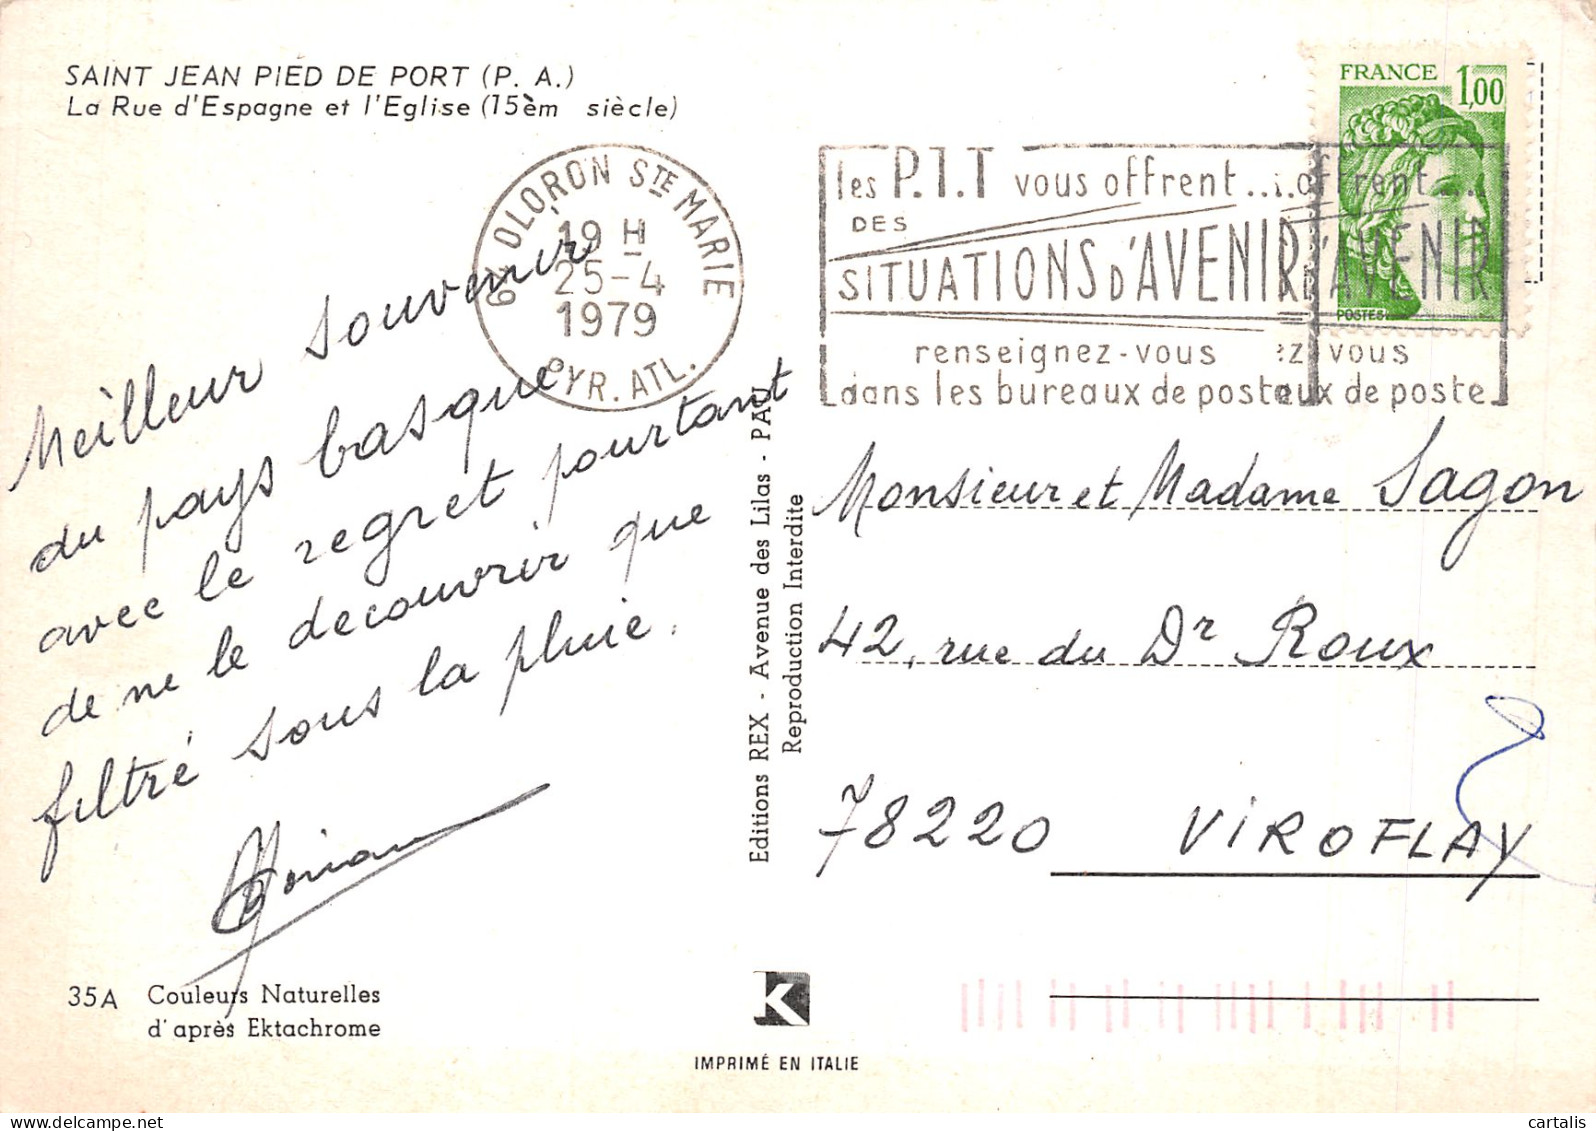 SAINT JEAN PIED DE PORT (P. A.)
La Rue d'Espagne et l'Eglise (15èm siècle)
64 OLORON STE MARIE
19 H
25-4
1979
PYR. ATL.
les P.T.T vous offrent...offrent...
DES
SITUATIONS D'AVENIR D'AVENIR
renseignez-vous ez vous
dans les bureaux de poste aux de poste
FRANCE 1,00
POSTES
Meilleur souvenir
du pays basque
avec le regret pourtant
de ne le decouvrir que
filtré sous la pluie.
Editions REX - Avenue des Lilas - PAU
Reproduction Interdite
Monsieur et Madame Sagon
42, rue du Dr Roux
78220 VIROFLAY
35A Couleurs Naturelles
d'après Ektachrome
K
IMPRIMÉ EN ITALIE
cartalis
delcampe.net